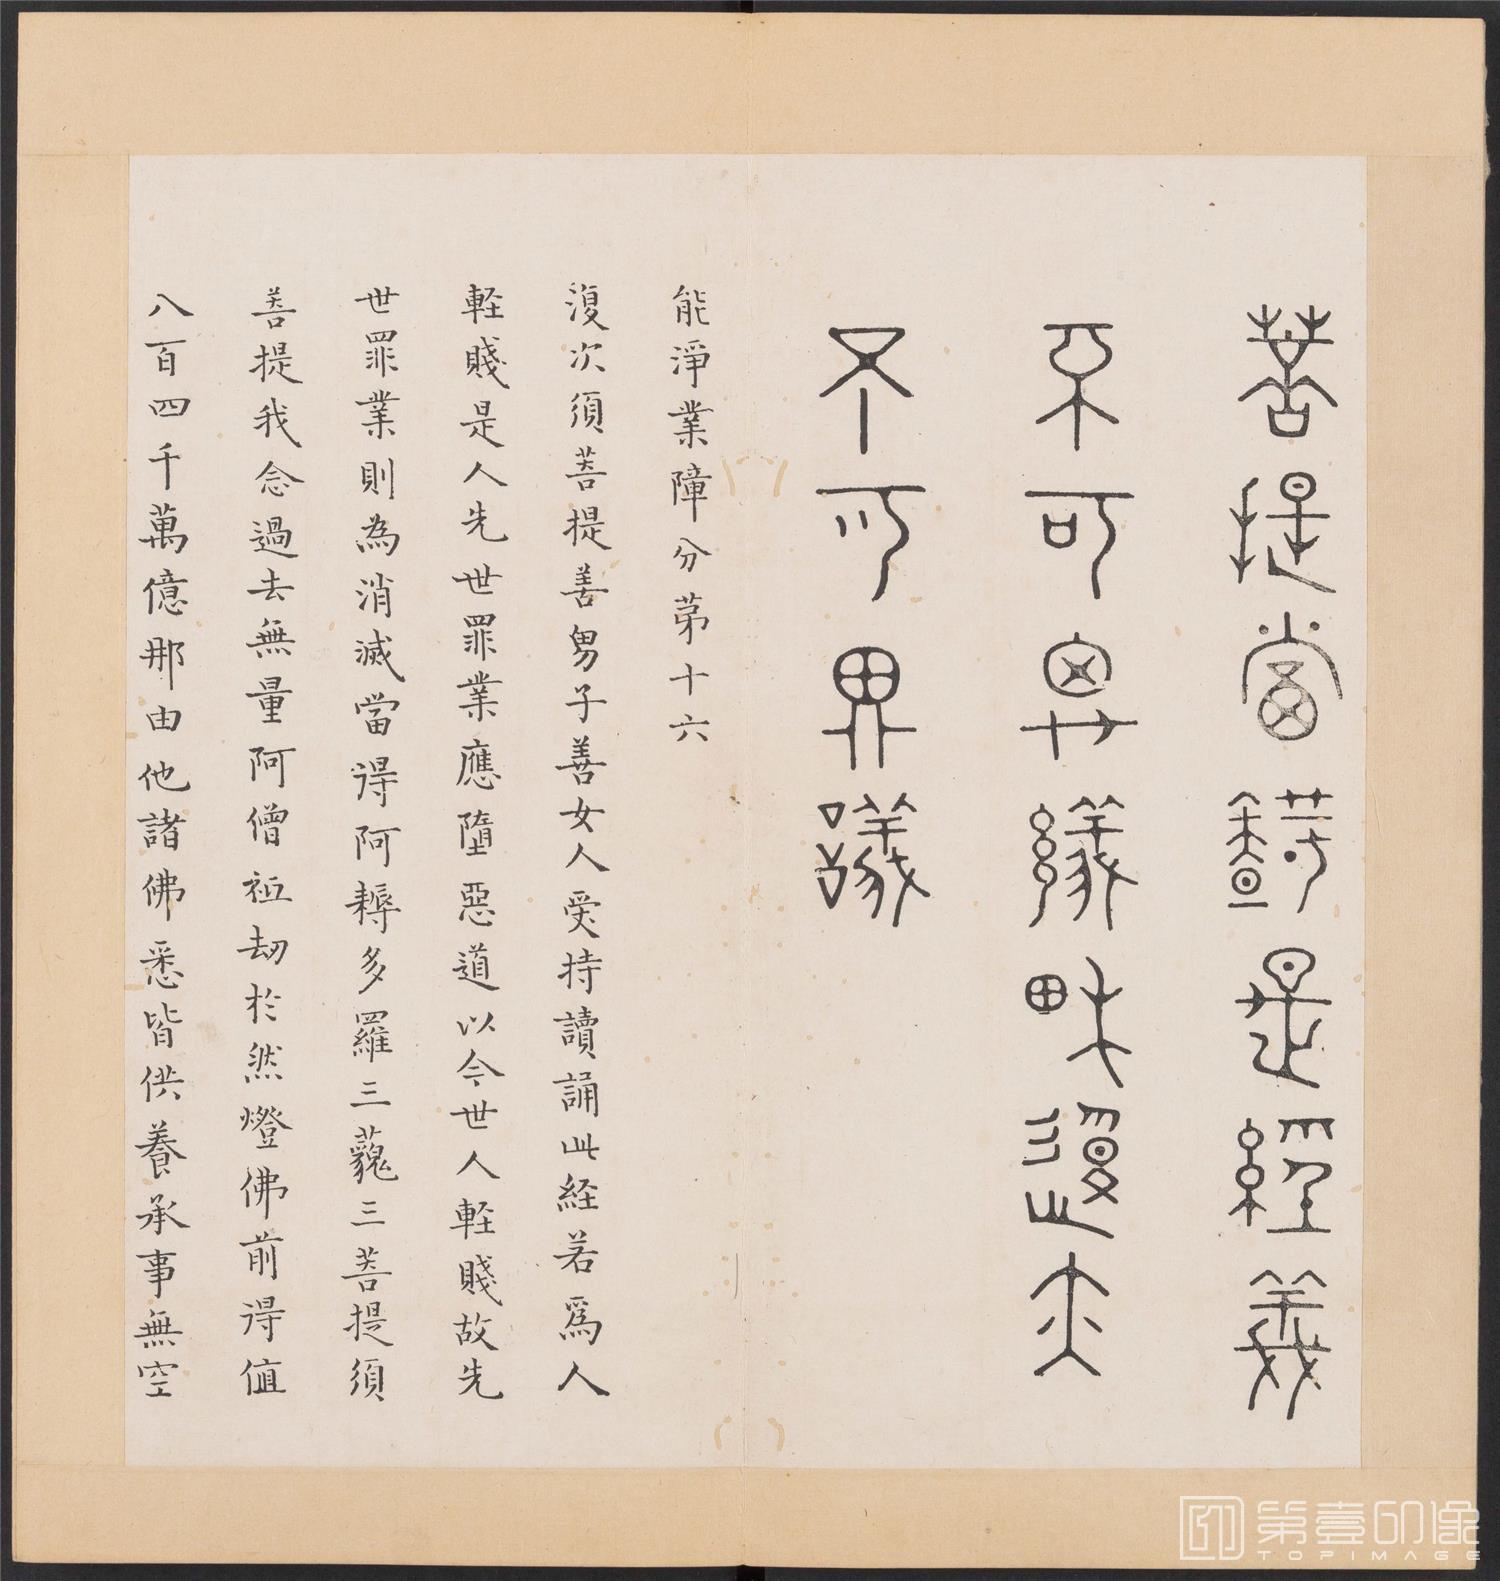 菩提當知是經義
不可思議果報亦
不可思議
能淨業障分苐十六
復次須菩提善男子善女人受持讀誦此経若爲人
軽賤是人先世罪業應墮惡道以今世人軽賤故先
世罪業則為消滅當得阿耨多羅三藐三菩提須
菩提我念過去無量阿僧祇劫於然燈佛前得值
八百四千萬億那由他諸佛悉皆供養承事無空
第壹印像
TOPIMAGE